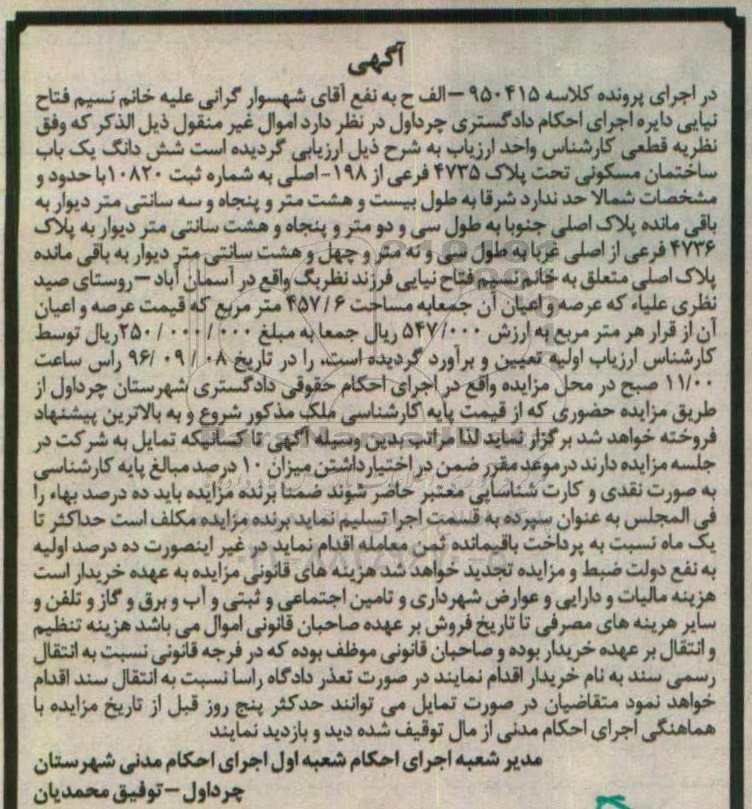 آگهی
در اجرای پرونده کلاسه ۹۵۰۴۱۵ –الف ح به نفع آقای شهسوار گرانی علیه خانم نسیم فتاح
نیایی دایره اجرای احکام دادگستری چرداول در نظر دارد اموال غیر منقول ذیل الذکر که وفق
نظریه قطعی کارشناس واحد ارزیاب به شرح ذیل ارزیابی گردیده است شش دانگ یک باب
ساختمان مسکونی تحت پلاک ۴۷۳۵ فرعی از ۱۹۸- اصلی به شماره ثبت ۱۰۸۲۰ با حدود و
مشخصات شمالا حد ندارد شرقا به طول بیست و هشت متر و پنجاه و سه سانتی متر دیوار به
باقی مانده پلاک اصلی جنوبا به طول سی و دو متر و پنجاه و هشت سانتی متر دیوار به پلاک
۴۷۳۶ فرعی از اصلی غربا به طول سی و نه متر و چهل و هشت سانتی متر دیوار به باقی مانده
پلاک اصلی متعلق به خانم نسیم فتاح نیایی فرزند نظربگ واقع در آسمان آباد – روستای صید
نظری علیاء که عرصه و اعیان آن جمعابه مساحت ۴۵۷/۶ متر مربع که قیمت عرصه و اعیان
آن از قرار هر متر مربع به ارزش ۵۴۷/۰۰۰ ریال جمعا به مبلغ ۲۵۰/۰۰۰/۰۰۰ریال توسط
کارشناس ارزیاب اولیه تعیین و برآورد گردیده است، را در تاریخ ۰۸ / ۰۹ /۹۶ راس ساعت
۱۱/۰۰ صبح در محل مزایده واقع در اجرای احکام حقوقی دادگستری شهرستان چرداول از
طریق مزایده حضوری که از قیمت پایه کارشناسی ملک مذکور شروع و به بالاترین پیشنهاد
فروخته خواهد شد برگزار نماید لذا مراتب بدین وسیله آگهی تا کسانیکه تمایل به شرکت در
جلسه مزایده دارند درموعد مقرر ضمن در اختیار داشتن میزان ۱۰ درصد مبالغ پایه کارشناسی
به صورت نقدی و کارت شناسایی معتبر حاضر شوند ضمنا برنده مزایده باید ده درصد بهاء را
فی المجلس به عنوان سپرده به قسمت اجرا تسلیم نماید برنده مزایده مکلف است حداکثر تا
یک ماه نسبت به پرداخت باقیمانده ثمن معامله اقدام نماید در غیر اینصورت ده درصد اولیه
به نفع دولت ضبط و مزایده تجدید خواهد شد هزینه های قانونی مزایده به عهده خریدار است
هزینه مالیات و دارایی و عوارض شهرداری و تامین اجتماعی و ثبتی و آب و برق و گاز و تلفن و
سایر هرینه های مصرفی تا تاریخ فروش بر عهده صاحبان قانونی اموال می باشد هزینه تنظیم
و انتقال بر عهده خریدار بوده و صاحبان قانونی موظف بوده که در فرجه قانونی نسبت به انتقال
رسمی سند به نام خریدار اقدام نمایند در صورت تعذر دادگاه راسا نسبت به انتقال سند اقدام
خواهد نمود متقاضیان در صورت تمایل می توانند حدکثر پنج روز قبل از تاریخ مزایده با
هماهنگی اجرای احکام مدنی از مال توقیف شده دید و بازدید نمایند
مدیر شعبه اجرای احکام شعبه اول اجرای احکام مدنی شهرستان
چرداول – توفیق محمدیان